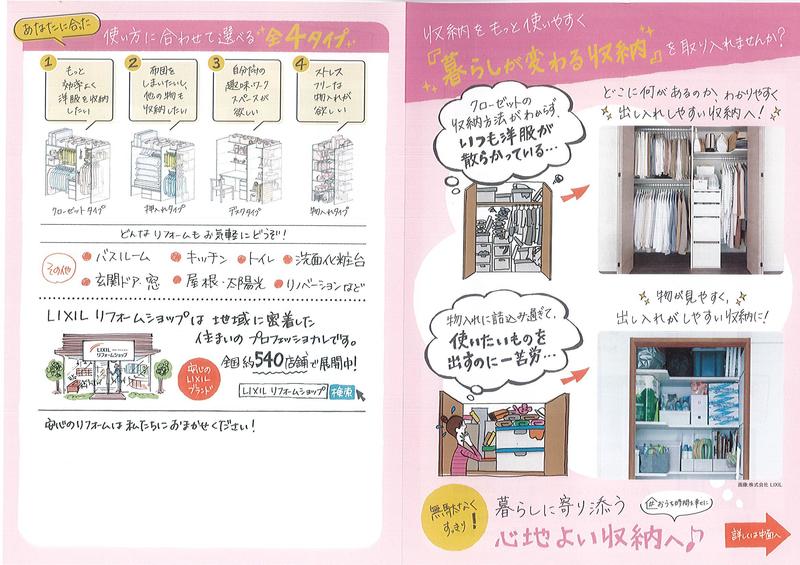 あなたに合った
使い方に合わせて選べる 全4タイプ
1
もっと
効率よく
洋服を収納
したい
2
布団を
しまいたいし、
他の物も
収納したい
3
自分だけの
趣味・ワーク
スペースが
欲しい
4
ストレス
フリーな
物入れが
欲しい
クローゼットタイプ
押入れタイプ
デスクタイプ
物入れタイプ
どんなリフォームもお気軽にどうぞ!
その他
バスルーム
キッチン
トイレ
洗面化粧台
玄関ドア・窓
屋根・太陽光
リノベーションなど
LIXIL リフォームショップは 地域に密着した
住まいの プロフェッショナルです。
LIXIL
リフォームショップ
安心の
LIXIL
ブランド
全国約540店舗で展開中!
LIXIL リフォームショップ 検索
安心のリフォームは私たちにおまかせください!
収納をもっと使いやすく
『暮らしが変わる収納』を取り入れませんか?
クローゼットの
収納方法がわからず、
いつも洋服が
散らかっている…
どこに何があるのか、わかりやすく
出し入れしやすい収納へ!
物入れに詰込み過ぎて、
使いたいものを
出すのに一苦労…
物が見やすく、
出し入れがしやすい収納に!
画像:株式会社 LIXIL
無駄なく
すっきり!
暮らしに寄り添う
#おうち時間を幸せに
心地よい収納へ♪
詳しくは中面へ